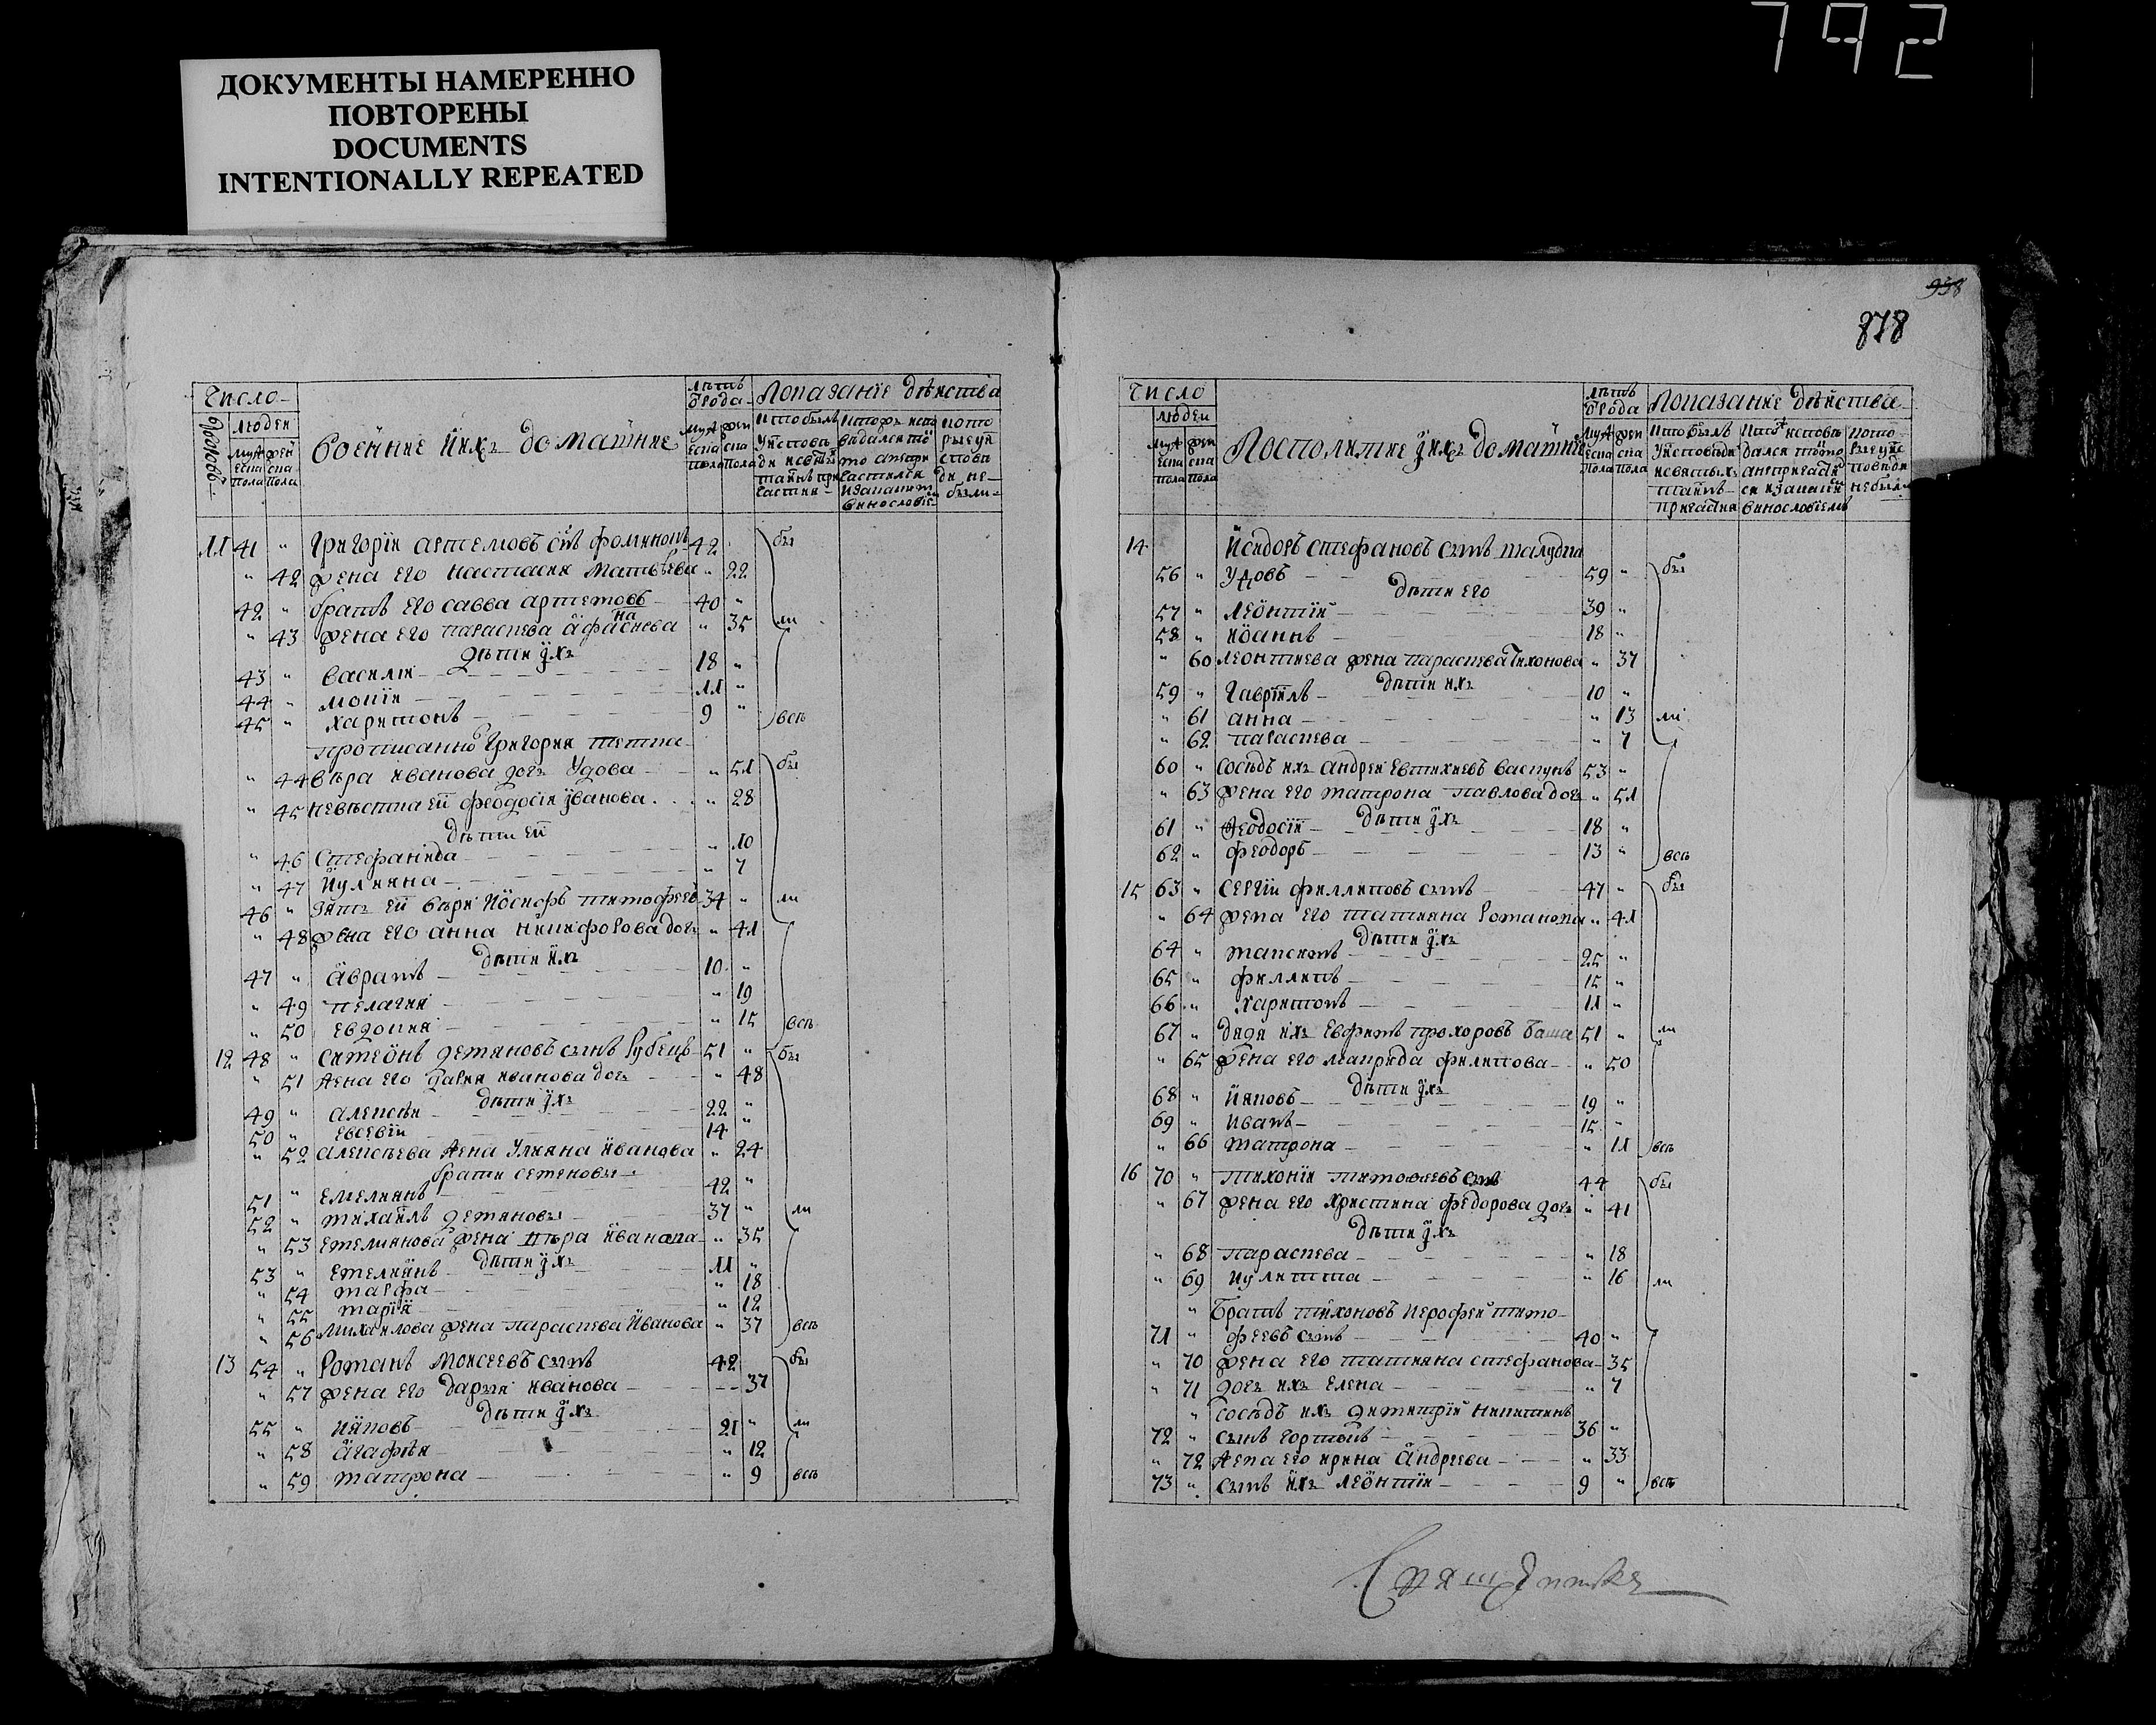 792
ДОКУМЕНТЫ НАМЕРЕННО
ПОВТОРЕНЫ
DOCUMENTS
INTENTIONALLY REPEATED
Число
людеи
дворовъ
муж еска пола
жен ска пола
Военние ихъ домашние
лѣтъ ѿ рода
муж еска пола
жен ска пола
Показание дѣиства
11 41 " Григории Артемовъ снъ Фоминокъ 42
" 42 жена его Настасия Матвѣева " 22
42 " братъ его Савва Артемовъ 40 "
" 43 жена его Параскева Афанасиева " 35
дѣти ихъ
43 " Василии 18 "
44 " Мокии 11 "
45 " Харитонъ 9 "
прописанно Григория тетка
" 44 Вѣра Иванова дочъ Удова " 51
" 45 невѣстка еи Феодосия Иванова " 28
дѣти еи
" 46 Стефанида " 10
" 47 Иулияна " 7
46 " зять еи Вѣри Иосифъ Тимофеев 34 "
" 48 жена его Анна Никифорова дочъ " 41
дѣти ихъ
47 " Аврамъ 10 "
" 49 Пелагия " 19
" 50 Евдокия " 15
12 48 " Симеонъ Демяновъ сынъ Рубецъ 51 "
" 51 жена его Дария Иванова дочъ " 48
дѣти ихъ
49 " Алексѣи 22 "
50 " Евсевии 14 "
" 52 Алексѣева жена Улияна Иванова " 24
брати Семенови
51 " Емелиянъ 42 "
52 " Михаилъ Демянови 37 "
" 53 Емелиянова жена Вѣра Иванова " 35
дѣти ихъ
53 " Емелиянъ 11 "
" 54 Марфа " 18
" 55 Мария " 12
" 56 Михаилова жена Параскева Иванова " 37
13 54 " Романъ Моисеевъ сынъ 42
" 57 жена его Дария Иванова 37
дѣти ихъ
55 "Ияковъ 21 "
" 58 Агафия " 12
" 59 Матрона " 9
бы
ли
всѣ
бы
ли
всѣ
бы
ли
всѣ
бы
ли
всѣ
958
878
Число
людеи
муж еска пола
жен ска пола
Посполитие ихъ домашние
лѣтъ ѿ рода
муж еска пола
жен ска пола
Показание дѣиства
14 Исидоръ Стефановъ сынъ Шалудка
56 " Удовъ 59 "
дѣти его
57 " Леонтии 39 "
58 " Иоаннъ 18 "
" 60 Леонтиева жена Параскева Тихонова " 37
дѣти ихъ
59 " Гавриилъ 10 "
" 61 Анна " 13
" 62 Параскева " 7
60 " Сосѣдъ ихъ Андреи Евтихиевъ 53 "
" 63 жена его Матрона Павлова дочъ " 51
дѣти ихъ
61 " Феодосии 18 "
62 " Феодоръ 13 "
15 63 " Сергии Филлиповъ сынъ 47 "
" 64 жена его Татияна Романова " 41
дѣти ихъ
64 " Максимъ 25 "
65 " Филлипъ 15 "
66 " Харитонъ 11 "
67 " дядя ихъ Евфимъ Прохоровъ 51 "
" 65 жена его Макрида Филипова " 50
дѣти ихъ
68 " Ияковъ 19 "
69 " Иванъ 15 "
" 66 Матрона " 11
16 70 " Тихонии Тимофеевъ сынъ 44
" 67 жена его Христина Федорова дочъ " 41
дѣти ихъ
" 68 Параскева " 18
" 69 Иулитта " 16
" Братъ Тихоновъ Иерофеи Тимо-
71 " феевъ сынъ 40 "
" 70 жена его Татияна Стефанова 35
" 71 дочъ ихъ Елена " 7
" Сосѣдъ ихъ Димитрии Никитинъ
72 " сынъ 36 "
" 72 жена его Ирина Андреева " 33
73 " сынъ ихъ Леонтии 9 "
бы
ли
всѣ
бы
ли
всѣ
бы
ли
всѣ